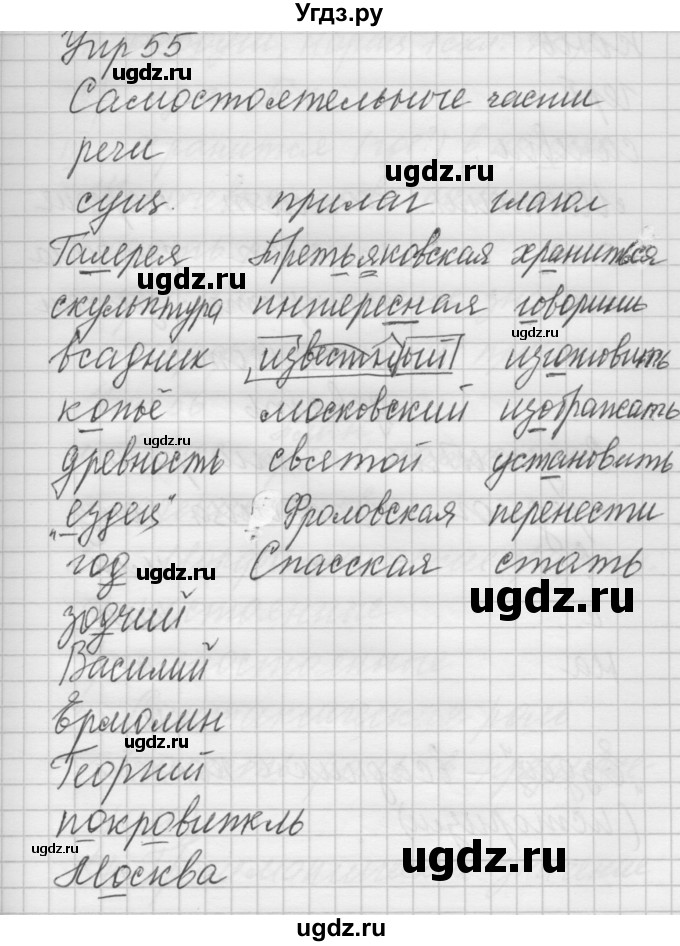 Угдз.ру
Упр 55
ugdz.ru
Самостоятельные части
речи
ugdz.ru
сущ. прилаг глагол
Галерея Третьяковская храниться
ugdz.ru
скульптура интересная говоришь
ugdz.ru
всадник известный изготовить
копьё московский изображать
ugdz.ru
древность святой установить
"ездец" Фроловская перенести
год Спасская стать
ugdz.ru
ugdz.ru
зодчий
Василий
Ермолин
ugdz.ru
Георгий
покровитель
ugdz.ru
ugdz.ru
Москва
ugdz.ru
Угдз.ру